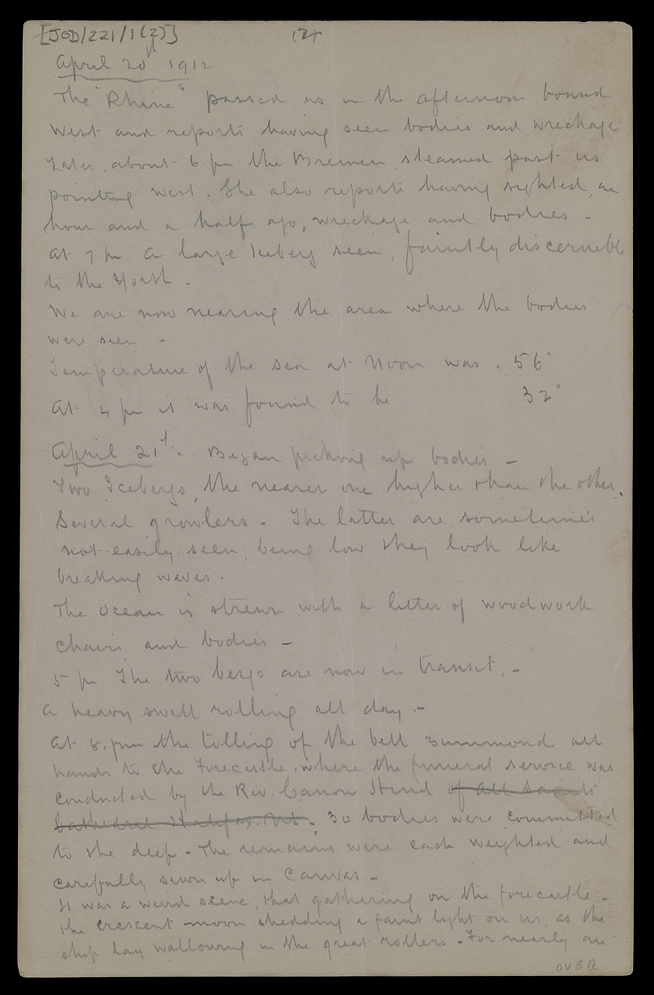 [JOD/221/1(2)]
(2)
April 20th 1912
The "Rhine" passed us in the afternoon bound
West and reports having seen bodies and wreckage
Later, about 6 pm the Bremen steamed past us
pointing west. She also reports having sighted, an
hour and a half ago, wreckage and bodies -
At 7 pm a large Iceberg seen, faintly discernible
to the North.
We are now nearing the area where the bodies
were seen -
Temperature of the sea at Noon was . 56°
At 4 pm it was found to be 32°
April 21st - Began picking up bodies -
Two Icebergs, the nearer one higher than the other.
Several growlers. The latter are sometimes
not easily seen, being low they look like
breaking waves.
The Ocean is strewn with a litter of woodwork
chairs and bodies -
5 pm The two bergs are now in transit, -
a heavy swell rolling all day -
At 8. pm the tolling of the bell summond all
hands to the Forecastle where the funeral service was
conducted by the Rev. Canon Hind of All Saints
Cathedral Halifax. N.S. 30 bodies were committed
to the deep - The remains were each weighted and
carefully sewn up in Canvas -
It was a weird scene, that gathering on the forecastle -
The crescent moon shedding a faint light on us, as the
ship lay wallowing in the great rollers - For nearly an
OVER